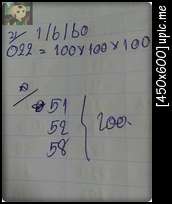 1/6/60
022 = 100×100×100
51
52
58
100
[450x600] upic.me